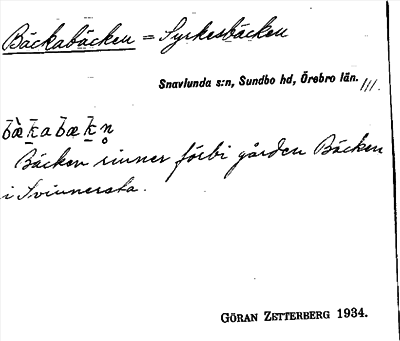 Bäckabäcken = Syrkesbäcken
Snavlunda s:n, Sundbo hd, Örebro län. 111.
bæ̀kabækn̥
Bäcken rinner förbi gården Bäcken
i Svinnersta.
GÖRAN ZETTERBERG 1934.